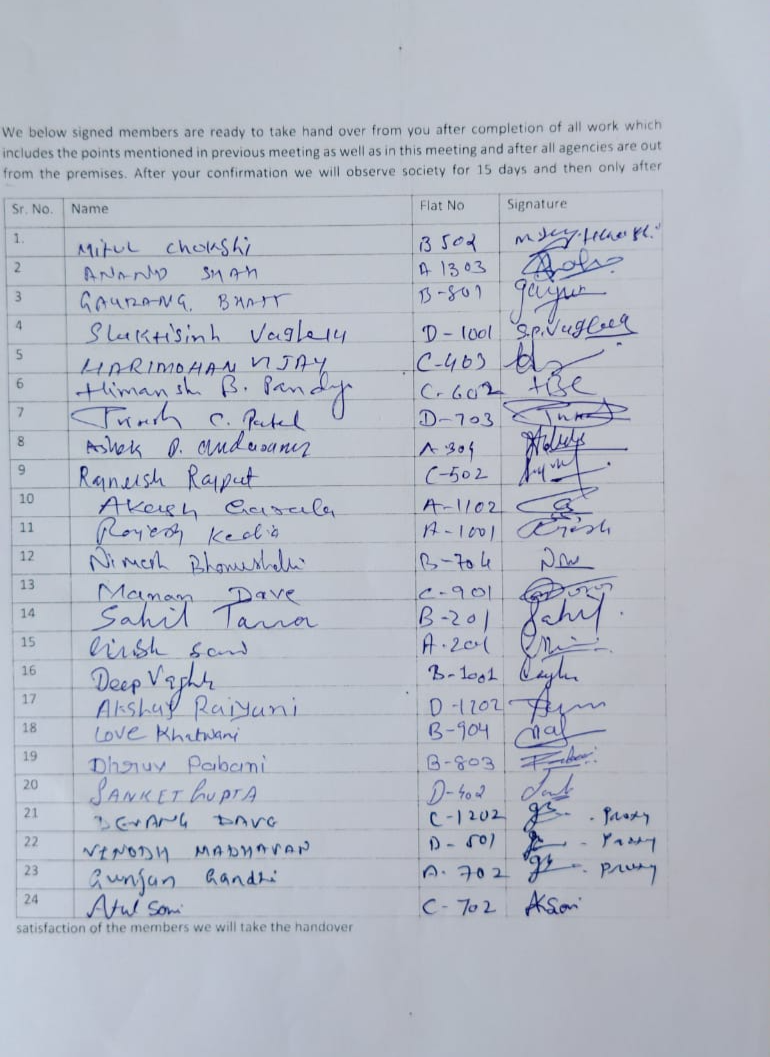 We below signed members are ready to take hand over from you after completion of all work which
includes the points mentioned in previous meeting as well as in this meeting and after all agencies are out
from the premises. After your confirmation we will observe society for 15 days and then only after
Sr. No. Name Flat No Signature
1. Mitul Chokshi B 502
2 ANAND SHAH A 1303
3 GAURANG. BHATT B-801
4 Shaktisinh Vaghela D-1001 S.P.Vaghela
5 HARIMOHAN VIJAY C-403
6 Himansh B. Pandya C-602 HBP
7 C. Patel D-703
8 Ashok D. A-304
9 Rajput C-502
10 Akash A-1102
11 Kedia A-1001
12 Nimesh B-704
13 Manan Dave C-901
14 Sahil Tanna B-201 Sahil.
15 Girish Soni A-201
16 Deep Vaghela B-1001
17 Akshay Raiyani D-1202
18 Love Khatwani B-904
19 Dhruv Pabani B-803
20 SANKET GUPTA D-402
21 DEVANG DAVE C-1202 - Proxy
22 VINODH MADHAVAN D-501 - Proxy
23 Gunjan Gandhi A-702 - Proxy
24 Atul Soni C-702 AKSoni
satisfaction of the members we will take the handover